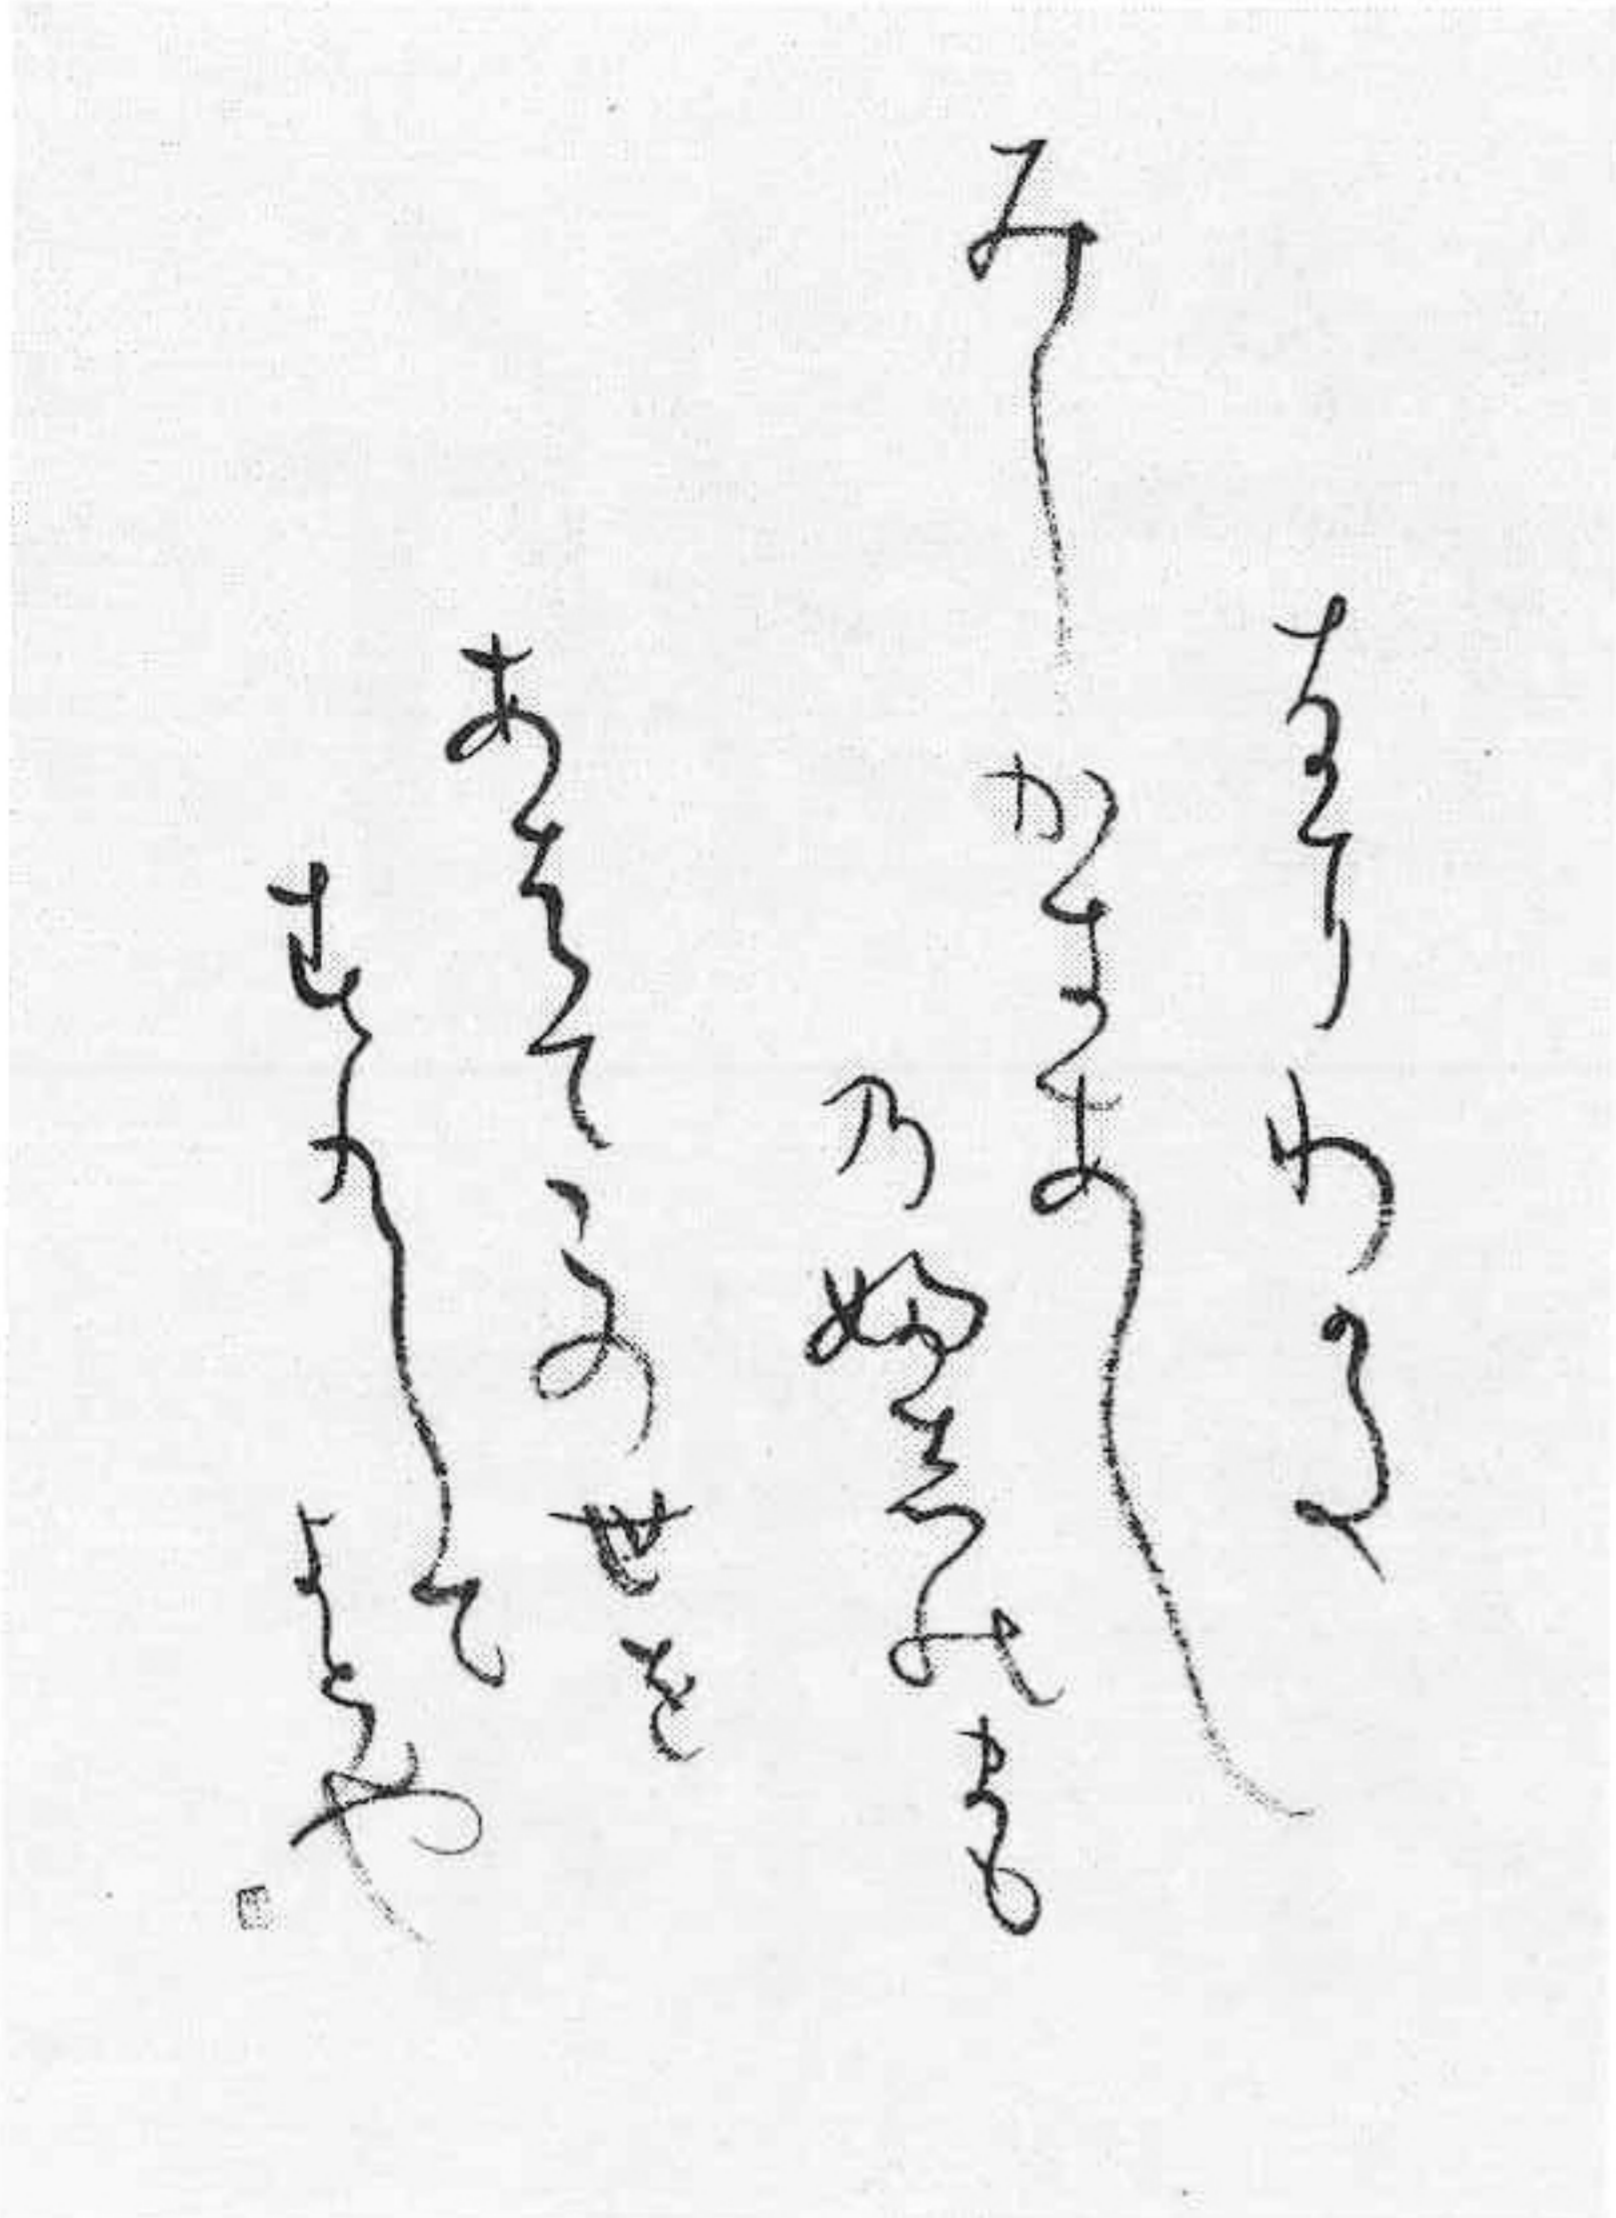 なにはかた
みしかきあし
乃ふしのまも
あはてこの世を
すくしてよとや